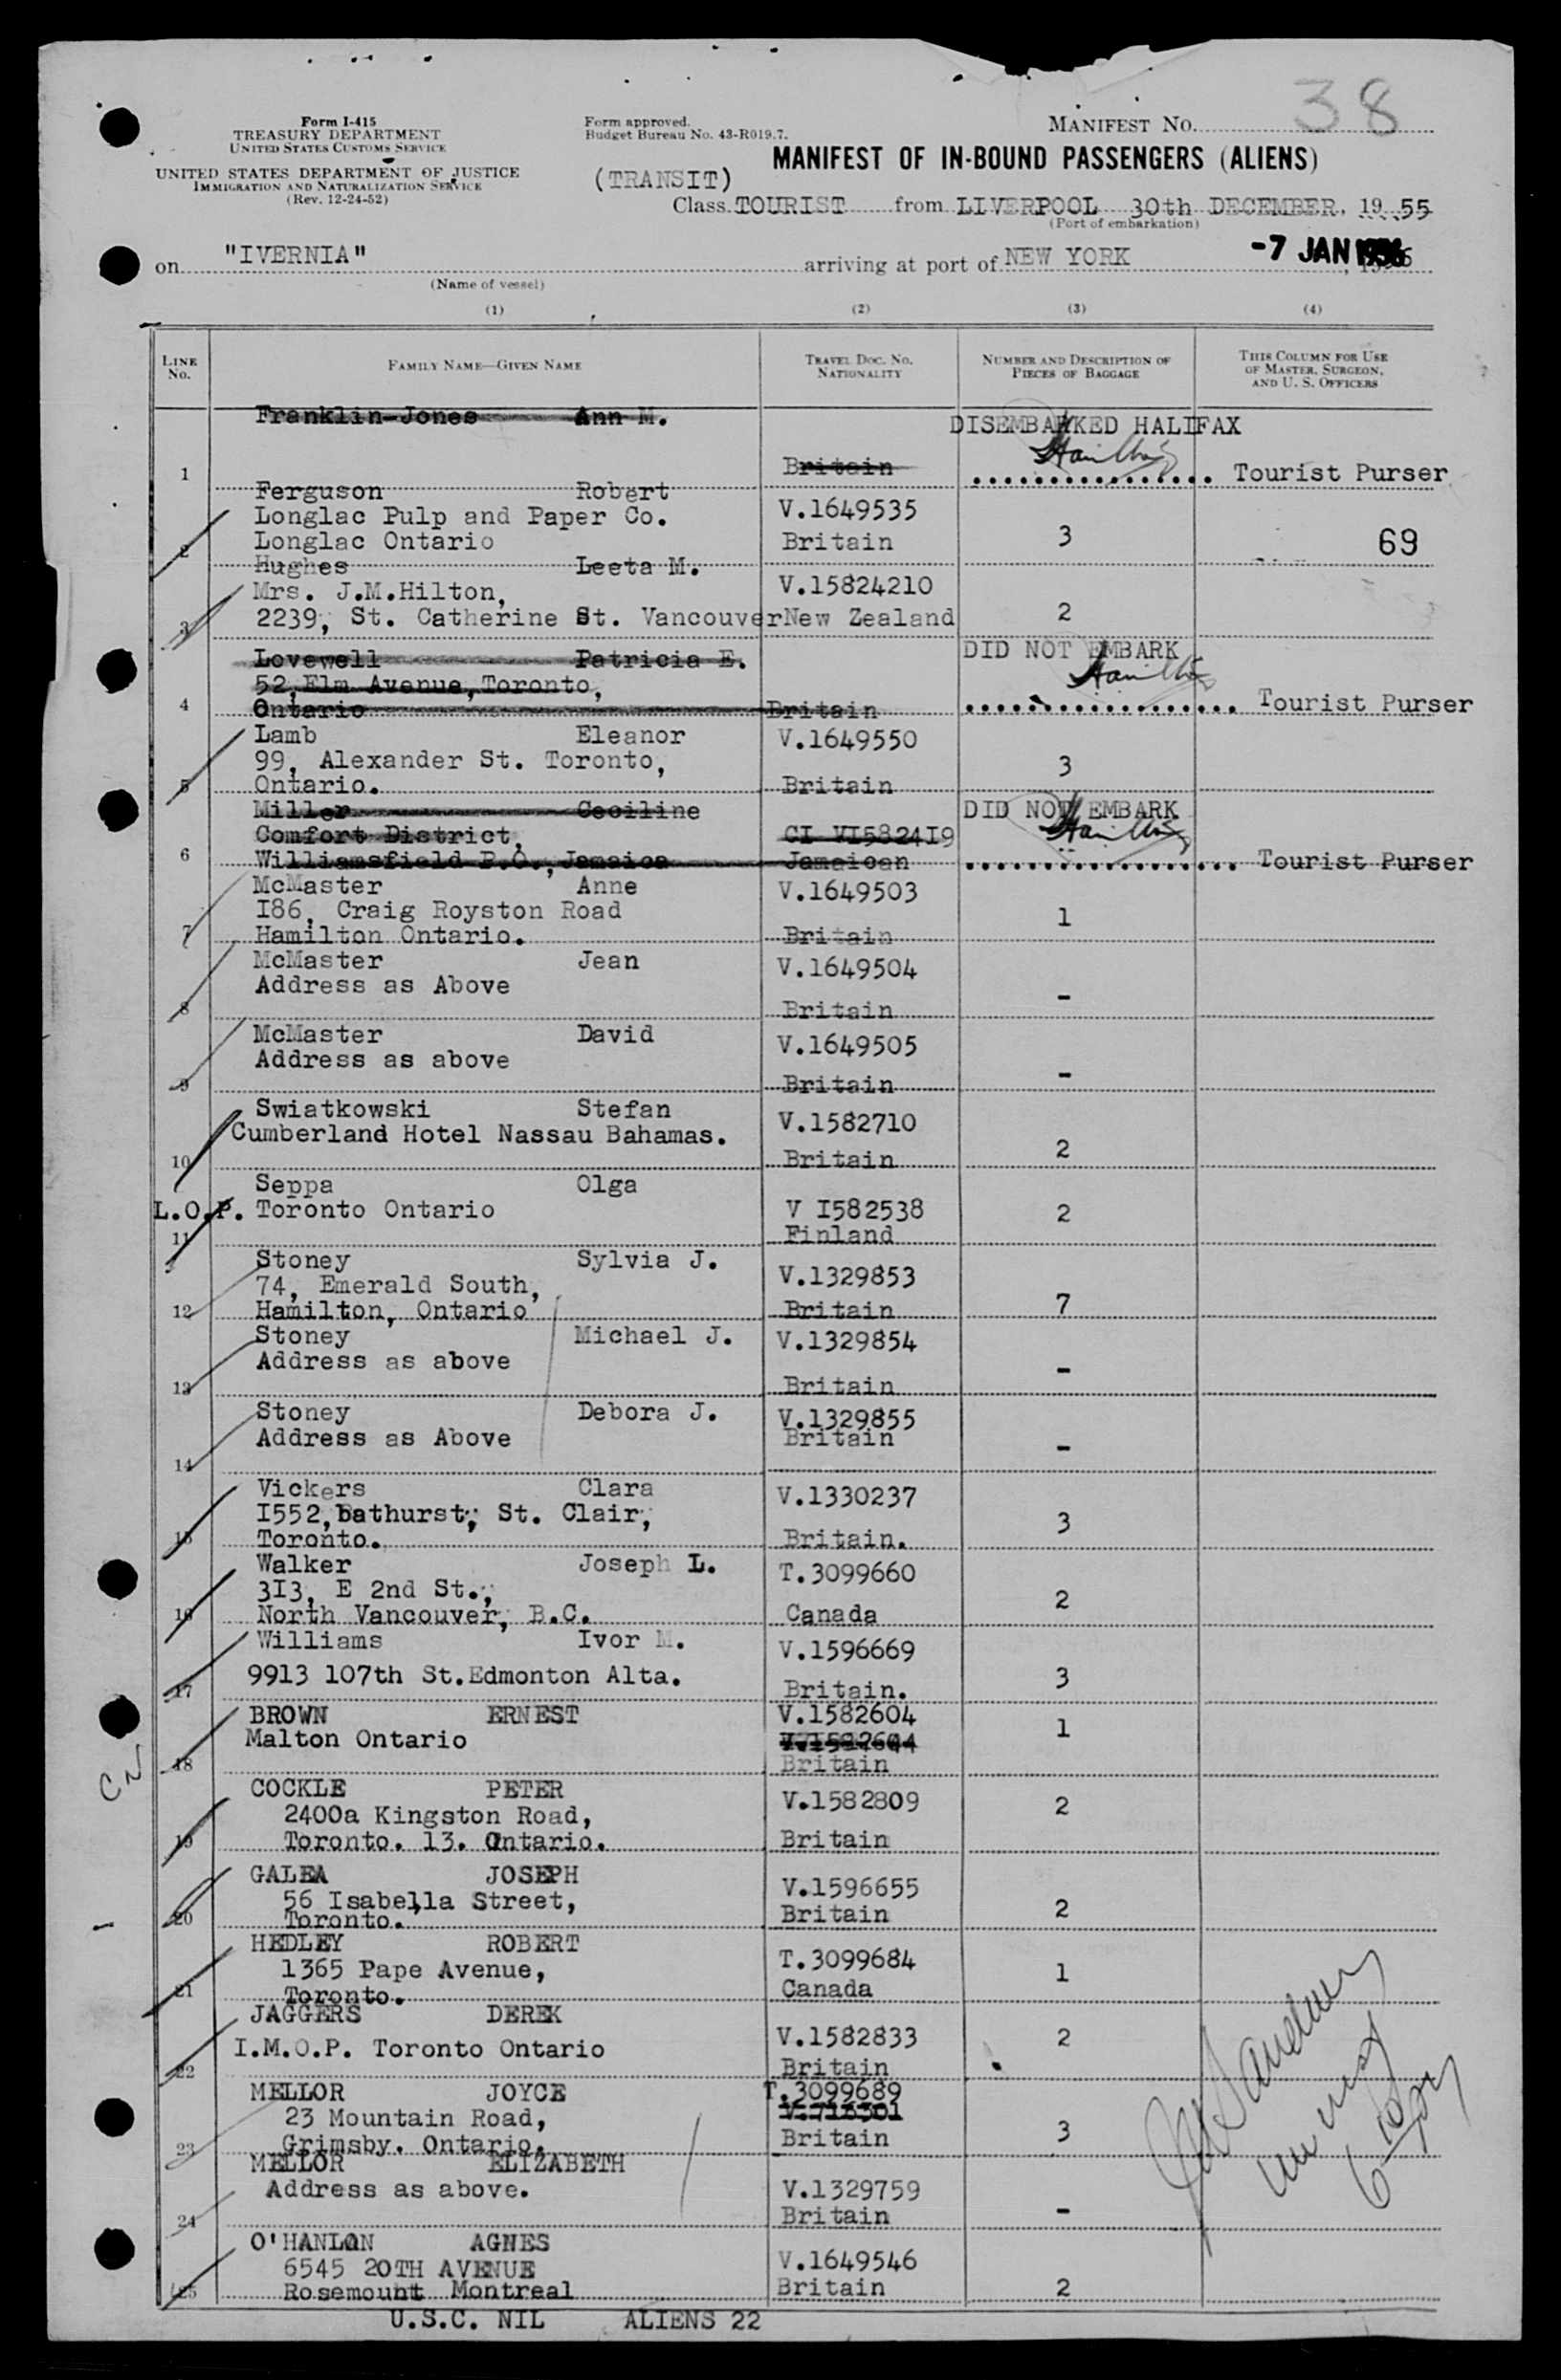 38
Form I-415
TREASURY DEPARTMENT
UNITED STATES CUSTOMS SERVICE
UNITED STATES DEPARTMENT OF JUSTICE
IMMIGRATION AND NATURALIZATION SERVICE
(Rev. 12-24-52)
Form approved.
Budget Bureau No. 43-R019.7.
MANIFEST NO.
MANIFEST OF IN-BOUND PASSENGERS (ALIENS)
(TRANSIT)
Class TOURIST from LIVERPOOL 30th DECEMBER, 19 55
(Port of embarkation)
on "IVERNIA" arriving at port of NEW YORK -7 JAN 1956
(Name of vessel)
(1) (2) (3) (4)
LINE No. FAMILY NAME—GIVEN NAME TRAVEL DOC. NO. NATIONALITY NUMBER AND DESCRIPTION OF PIECES OF BAGGAGE THIS COLUMN FOR USE OF MASTER, SURGEON, AND U. S. OFFICERS
Franklin-Jones Ann M. DISEMBARKED HALIFAX
1 Britain Tourist Purser
Ferguson Robert V.1649535
Longlac Pulp and Paper Co.
2 Longlac Ontario Britain 3 69
Hughes Leeta M. V.15824210
Mrs. J.M.Hilton,
3 2239, St. Catherine St. Vancouver New Zealand 2
Lovewell Patricia E. DID NOT EMBARK
52,Elm Avenue,Toronto,
4 Ontario Britain Tourist Purser
Lamb Eleanor V.1649550
99, Alexander St. Toronto, 3
5 Ontario. Britain
Miller Ceciline DID NOT EMBARK
Comfort District, CI VI582419
6 Williamsfield P.O., Jamaica Jamaican Tourist Purser
McMaster Anne V.1649503
I86, Craig Royston Road 1
7 Hamilton Ontario. Britain
McMaster Jean V.1649504
Address as Above
8 Britain -
McMaster David V.1649505
Address as above
9 Britain -
Swiatkowski Stefan V.1582710
Cumberland Hotel Nassau Bahamas.
10 Britain 2
Seppa Olga
L.O.P. Toronto Ontario V I582538 2
11 Finland
Stoney Sylvia J. V.1329853
74, Emerald South,
12 Hamilton, Ontario Britain 7
Stoney Michael J. V.1329854
Address as above
13 Britain -
Stoney Debora J. V.1329855
Address as Above Britain -
14
Vickers Clara V.1330237
I552,bathurst, St. Clair, 3
15 Toronto. Britain.
Walker Joseph L. T.3099660
3I3, E 2nd St., 2
16 North Vancouver, B.C. Canada
Williams Ivor M. V.1596669
9913 107th St.Edmonton Alta. 3
17 Britain.
BROWN ERNEST V.1582604 1
Malton Ontario V.1582604
18 Britain
COCKLE PETER V.1582809 2
2400a Kingston Road,
19 Toronto. 13. Ontario. Britain
GALEA JOSEPH V.1596655
56 Isabella Street, Britain 2
20 Toronto.
HEDLEY ROBERT T.3099684
1365 Pape Avenue, Canada 1
21 Toronto.
JAGGERS DEREK V.1582833 2
I.M.O.P. Toronto Ontario
22 Britain
MELLOR JOYCE T.3099689
23 Mountain Road, 3
23 Grimsby. Ontario. Britain
MELLOR ELIZABETH V.1329759
Address as above. Britain -
24
O'HANLON AGNES V.1649546
6545 20TH AVENUE
25 Rosemount Montreal Britain 2
U.S.C. NIL ALIENS 22